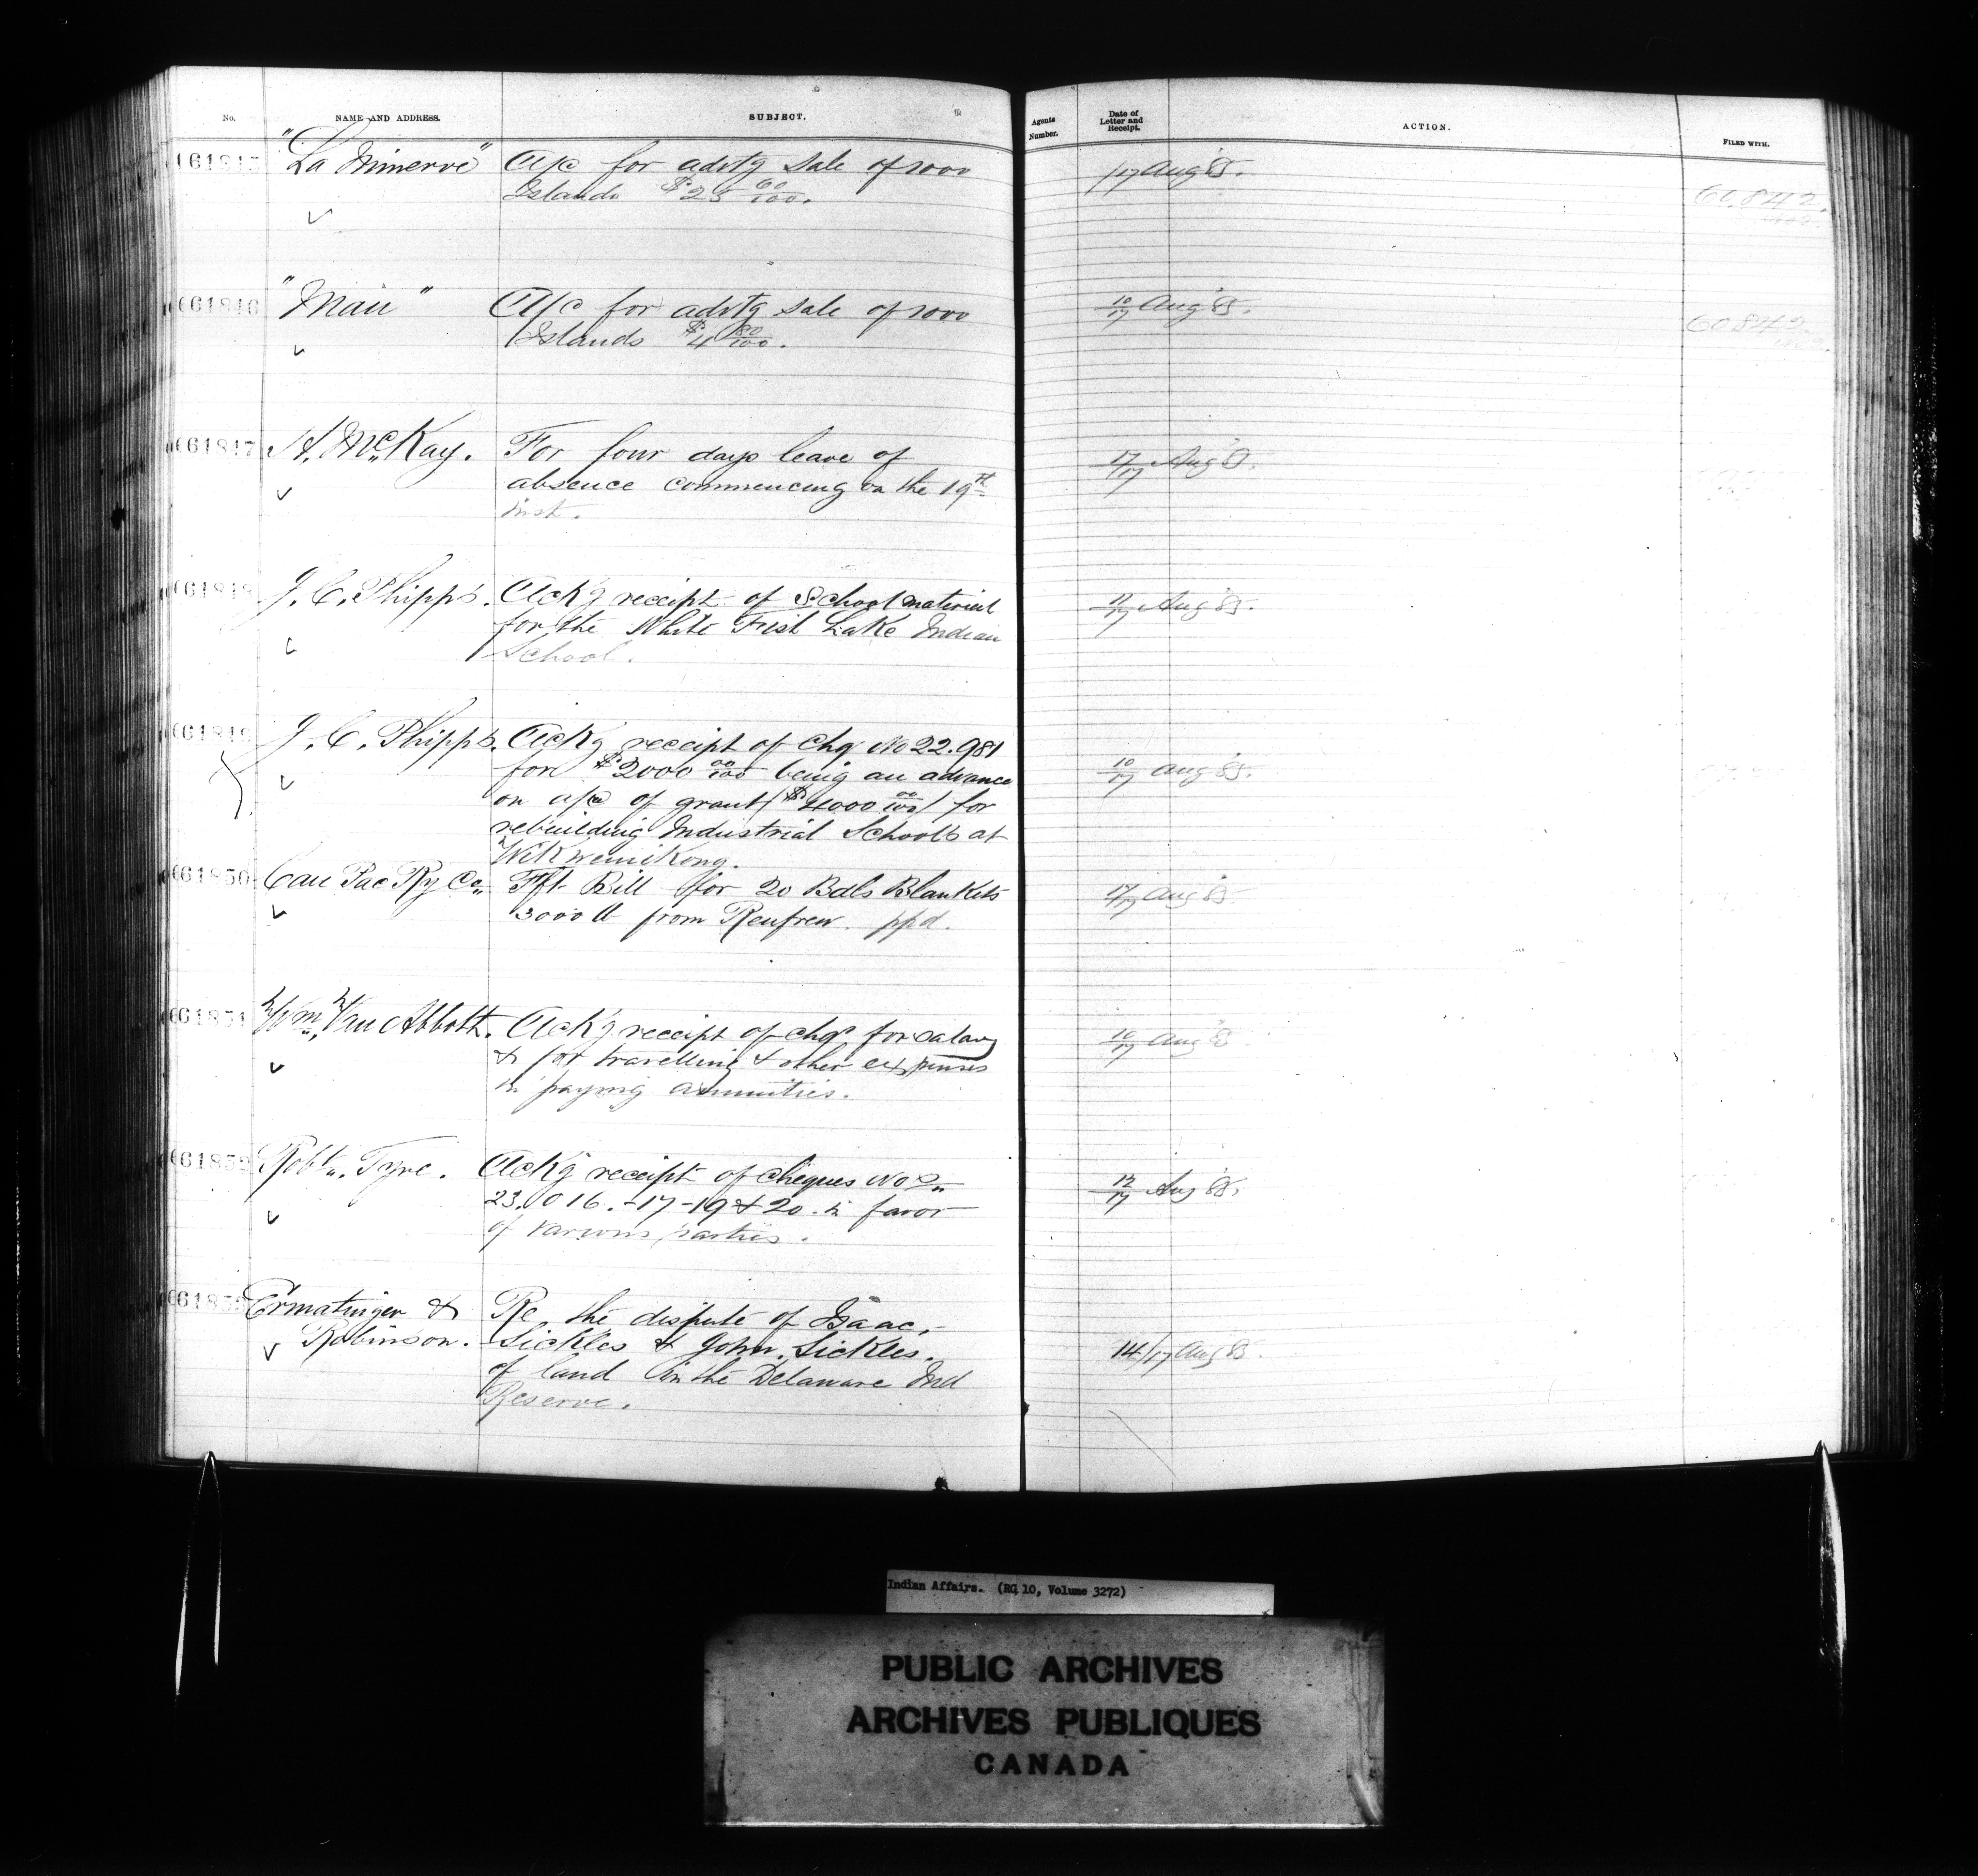 No. NAME AND ADDRESS. SUBJECT. Agents Number. Date of Letter and Receipt. ACTION. FILED WITH.
61845 "La Minerve" A/c for advtg sale of 1000 /17 Aug 85.
Islands $25 60/100. 60,842.
61846 "Mail" A/c for advtg sale of 1000 10/17 Aug 85.
Islands $4 80/100. 60842.
61847 H. McKay. For four days leave of 17/17 Aug 85.
absence commencing on the 19th
inst.
61848 J. C. Phipps. Ackg receipt of School material 11/17 Aug 85.
for the White Fish Lake Indian
School.
61849 J. C. Phipps. Ackg receipt of chq No 22.981
for $2000 00/100 being an advance 10/17 Aug 85.
on a/c of grant ($4000 00/100) for
rebuilding Industrial Schools at
Wikwemikong.
61850 Can Pac Ry Co. Fft Bill for 20 Bdls Blankets 17/17 Aug 85
3000 lb from Renfrew. ppd.
61851 Wm. Van Abbott. Ackg receipt of chqs for salary 10/17 Aug 85
& for travelling & other expenses
in paying annuities.
61852 Robt. Tyre. Ackg receipt of cheques Nos
23,016.-17-19 & 20. in favor 12/17 Aug 85.
of various parties.
61853 Ermatinger & Re the dispute of Isaac
Robinson. Sickles & John Sickles. 14/17 Aug 85.
of land in the Delaware Ind
Reserve.
Indian Affairs. (RG 10, Volume 3272)
PUBLIC ARCHIVES
ARCHIVES PUBLIQUES
CANADA